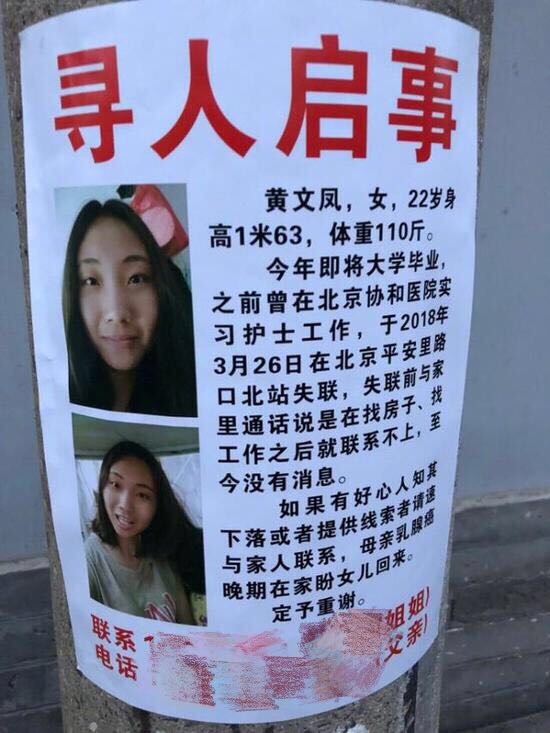 寻人启事
黄文凤，女，22岁身
高1米63，体重110斤。
今年即将大学毕业，
之前曾在北京协和医院实
习护士工作，于2018年
3月26日在北京平安里路
口北站失联，失联前与家
里通话说是在找房子、找
工作之后就联系不上，至
今没有消息。
如果有好心人知其
下落或者提供线索者请速
与家人联系，母亲乳腺癌
晚期在家盼女儿回来。
定予重谢。
联系 姐姐)
电话 (父亲)